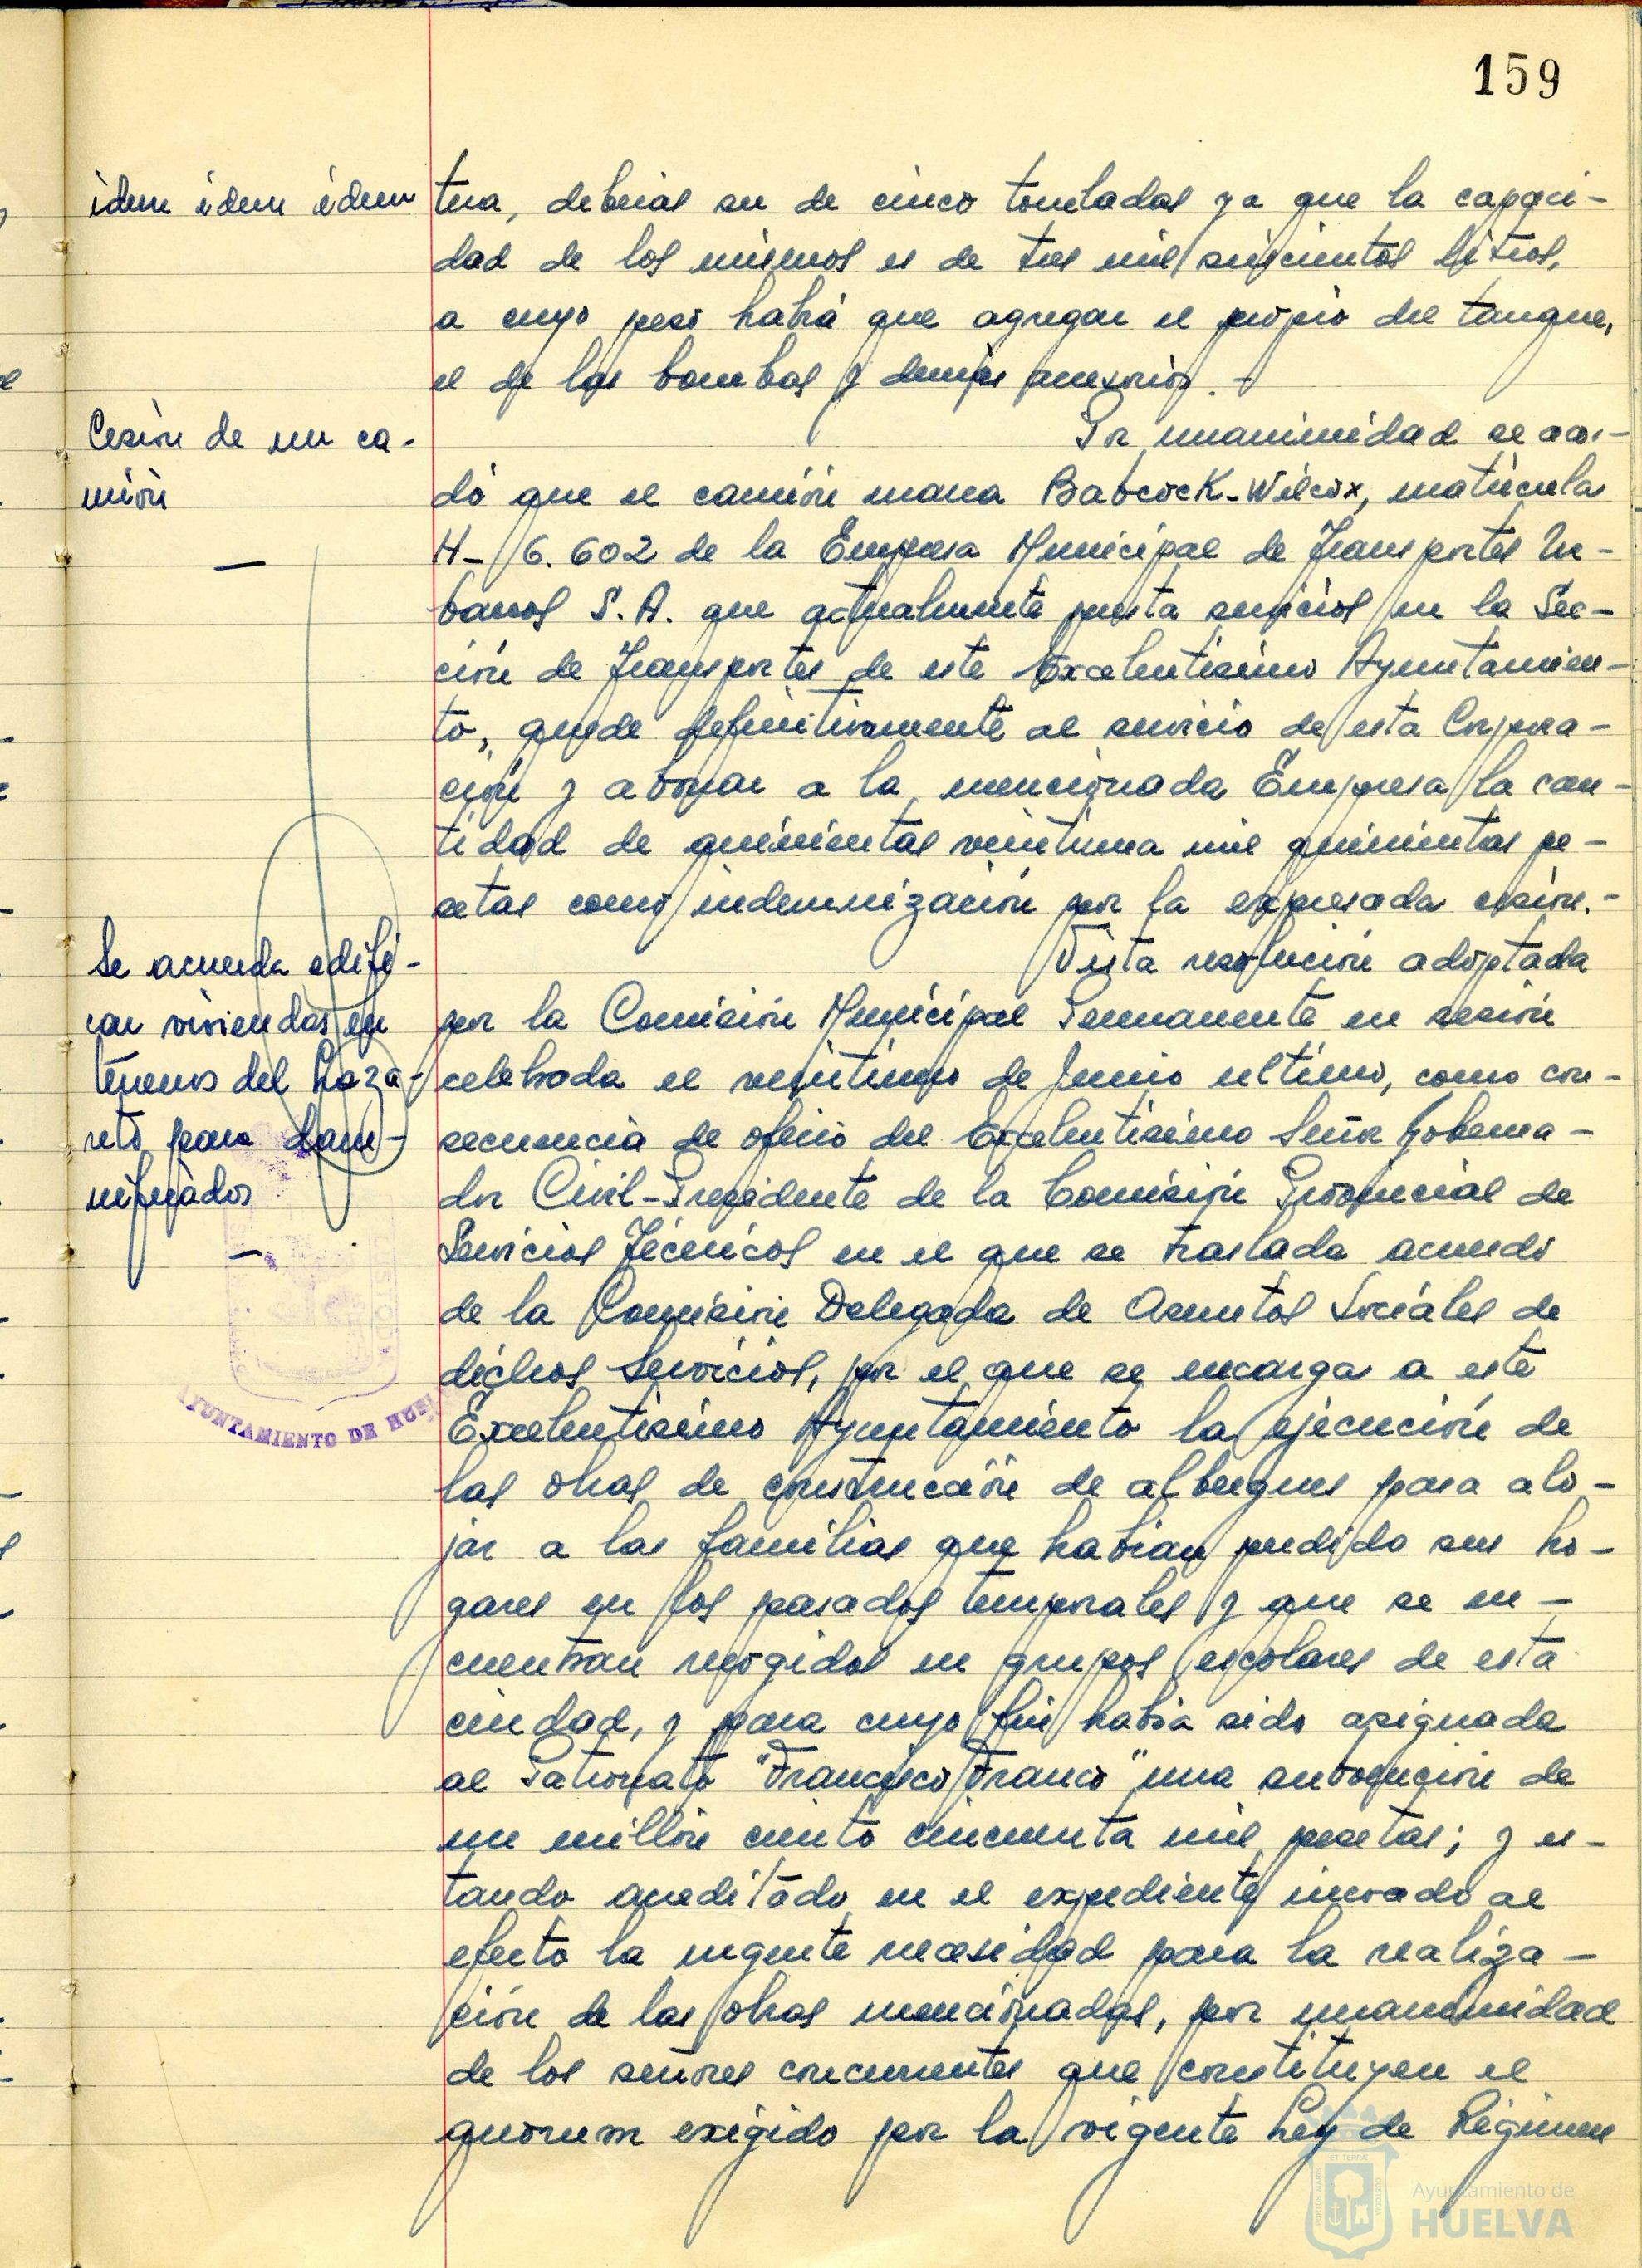 159
idem idem idem
tena, deberias ser de cinco toneladas ya que la capaci-
dad de los mismos es de tres mil seiscientos litros,
a cuyo peso habrá que agregar el propio del tanque,
el de las bombas y demás accesorios.-
Cesión de un ca-
mión
Por unanimidad se acor-
dó que el camión marca Babcock-Wilcox, matricula
H-6.602 de la Empresa Municipal de Transportes Ur-
banos S.A. que actualmente presta servicios en la Sec-
ción de Transportes de este Excelentisimo Ayuntamien-
to, quede definitivamente al servicio de esta Corpora-
ción y abonar a la mencionada Empresa la can-
tidad de quinientas veintiuna mil quinientas pe-
setas como indemnización por la expresada cesión.-
Se acuerda edifi-
car viviendas en
terrenos del Laza-
reto para dam-
nificados
Vista resolución adoptada
por la Comisión Municipal Permanente en sesión
celebrada el veintiuno de Junio ultimo, como con-
secuencia de oficio del Excelentisimo Señor Goberna-
dor Civil-Presidente de la Comisión Provincial de
Servicios Técnicos en el que se traslada acuerdo
de la Comisión Delegada de Asuntos Sociales de
dichos Servicios, por el que se encarga a este
Excelentisimo Ayuntamiento la ejecución de
las obras de construcción de albergues para alo-
jar a las familias que habian perdido sus ho-
gares en los pasados temporales y que se en-
cuentran recogidos en grupos escolares de esta
ciudad, y para cuyo fin habia sido asignada
al Patronato "Francisco Franco" una subvención de
un millón ciento cincuenta mil pesetas; y es-
tando acreditado en el expediente incoado al
efecto la urgente necesidad para la realiza-
ción de las obras mencionadas, por unanimidad
de los señores concurrentes que constituyen el
quorum exigido por la vigente Ley de Régimen
AYUNTAMIENTO DE HUEL
Ayuntamiento de
HUELVA